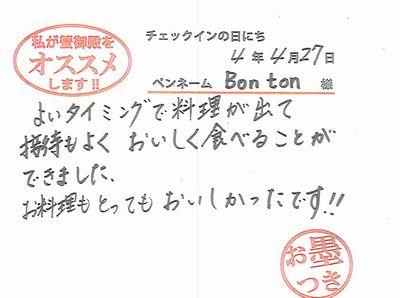 私が蟹御殿を
オススメ
します!!
チェックインの日にち
4 年 4 月 27 日
ペンネーム Bonton 様
よいタイミングで料理が出て
接待もよく おいしく食べることが
できました、
お料理もとっても おいしかったです!!
お墨
つき